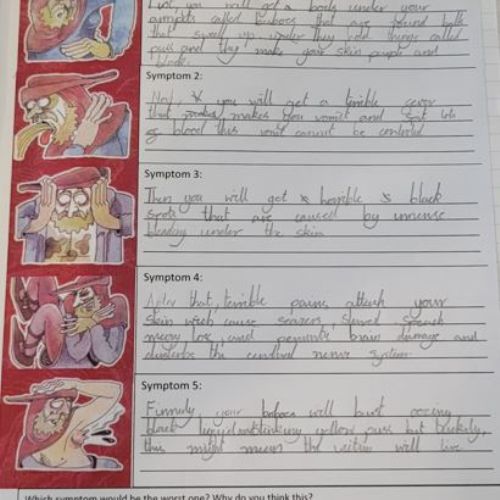 First, you will get a boils under your
armpits called Buboes that are round balls
that swell up under they hold things called
puss and they make your skin purple and
black.
Symptom 2:
Next, you will get a terrible fever
that makes you vomit and spit lots
of blood this vomit cannot be controled
Symptom 3:
Then you will get horrible black
spots that are caused by imense
bleeding under the skin
Symptom 4:
After that, terrible pains attack your
skin wich cause slured speach
memory loss, and brain damage and
the nerve system
Symptom 5:
your will bust oozing
black liquid and stinking yellow puss but luckily,
this might mean the victim will live
Which symptom would be the worst one? Why do you think this?